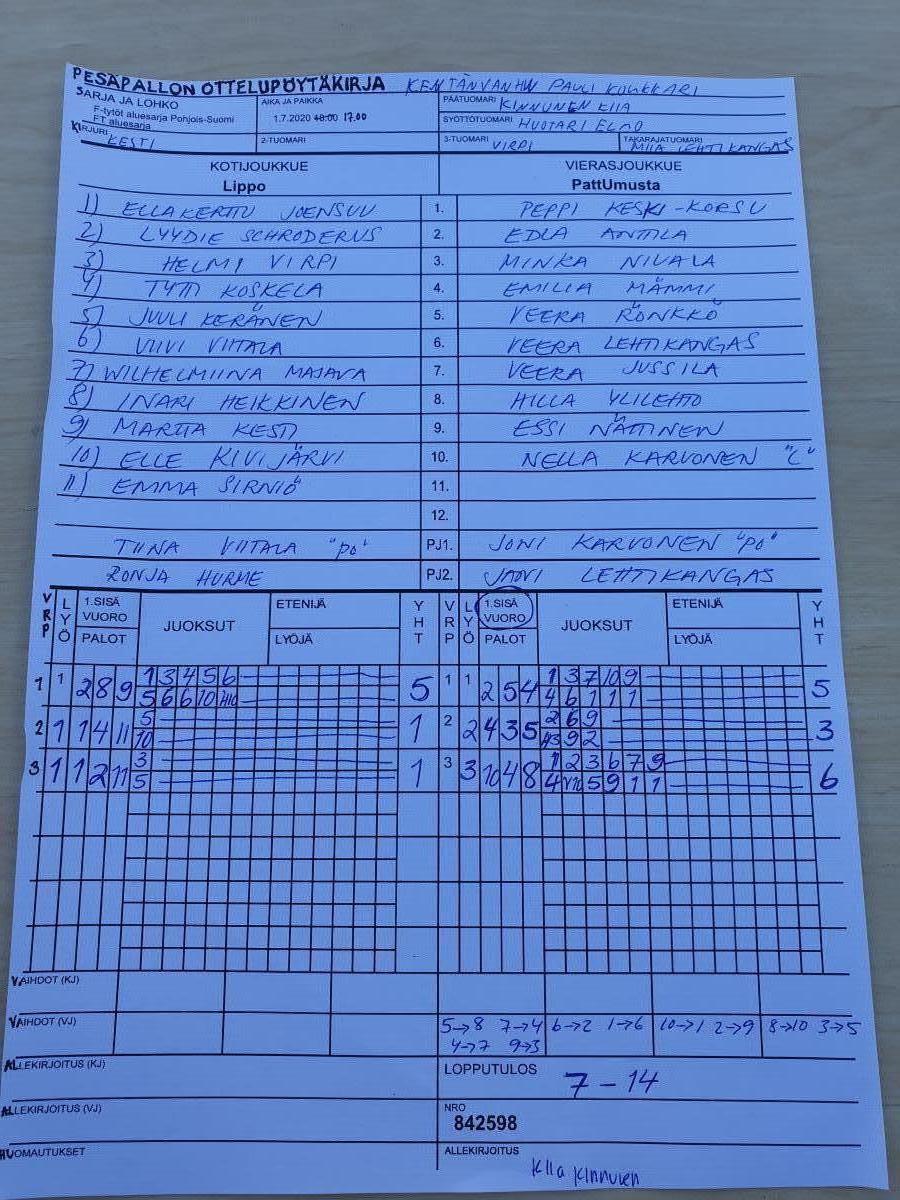 PESÄPALLON OTTELUPÖYTÄKIRJA KENTÄNVANHIN PAULI KOUKKARI
SARJA JA LOHKO
F-tytöt aluesarja Pohjois-Suomi
FT aluesarja
AIKA JA PAIKKA
1.7.2020 18:00 17.00
PÄÄTUOMARI KINNUNEN KIIA
SYÖTTÖTUOMARI HUOTARI ELMO
KIRJURI KESTI
2-TUOMARI
3-TUOMARI VIRPI
TAKARAJATUOMARI MIIA LEHTIKANGAS
KOTIJOUKKUE
Lippo
VIERASJOUKKUE
PattUmusta
1) ELLAKERTTU JOENSUU 1. PEPPI KESKI-KORSU
2) LYYDIE SCHRODERUS 2. EDLA ANTTILA
3) HELMI VIRPI 3. MINKA NIVALA
4) TYTTI KOSKELA 4. EMILIA MÄMMI
5) JUULI KERÄNEN 5. VEERA RÖNKKÖ
6) VIIVI VIITALA 6. VEERA LEHTIKANGAS
7) WILHELMIINA MAJAVA 7. VEERA JUSSILA
8) INARI HEIKKINEN 8. HILLA YLILEHTO
9) MARTTA KESTI 9. ESSI NÄTTINEN
10) ELLE KIVIJÄRVI 10. NELLA KARVONEN "C"
11) EMMA SIRNIÖ 11.
12.
TIINA VIITALA "PO" PJ1. JONI KARVONEN "PO"
RONJA HURME PJ2. LEHTIKANGAS
VRP LYÖ 1.SISÄ VUORO PALOT JUOKSUT ETENIJÄ LYÖJÄ YHT VRP LYÖ 1.SISÄ VUORO PALOT JUOKSUT ETENIJÄ LYÖJÄ YHT
1 1 2 8 9 1 3 4 5 6 5 1 1 2 5 4 1 3 7 10 9 5
5 6 6 10 4 6 1 1 1
2 1 1 4 11 5 1 2 2 4 3 5 2 6 9 3
10 9 2
3 1 1 2 11 3 1 3 3 10 4 8 1 2 3 6 7 9 6
5 4 V10 5 9 1 1
VAIHDOT (KJ)
VAIHDOT (VJ) 5→8 7→4 6→2 1→6 10→1 2→9 8→10 3→5
4→7 9→3
ALLEKIRJOITUS (KJ)
LOPPUTULOS 7 - 14
ALLEKIRJOITUS (VJ)
NRO
842598
HUOMAUTUKSET
ALLEKIRJOITUS
Kiia Kinnunen